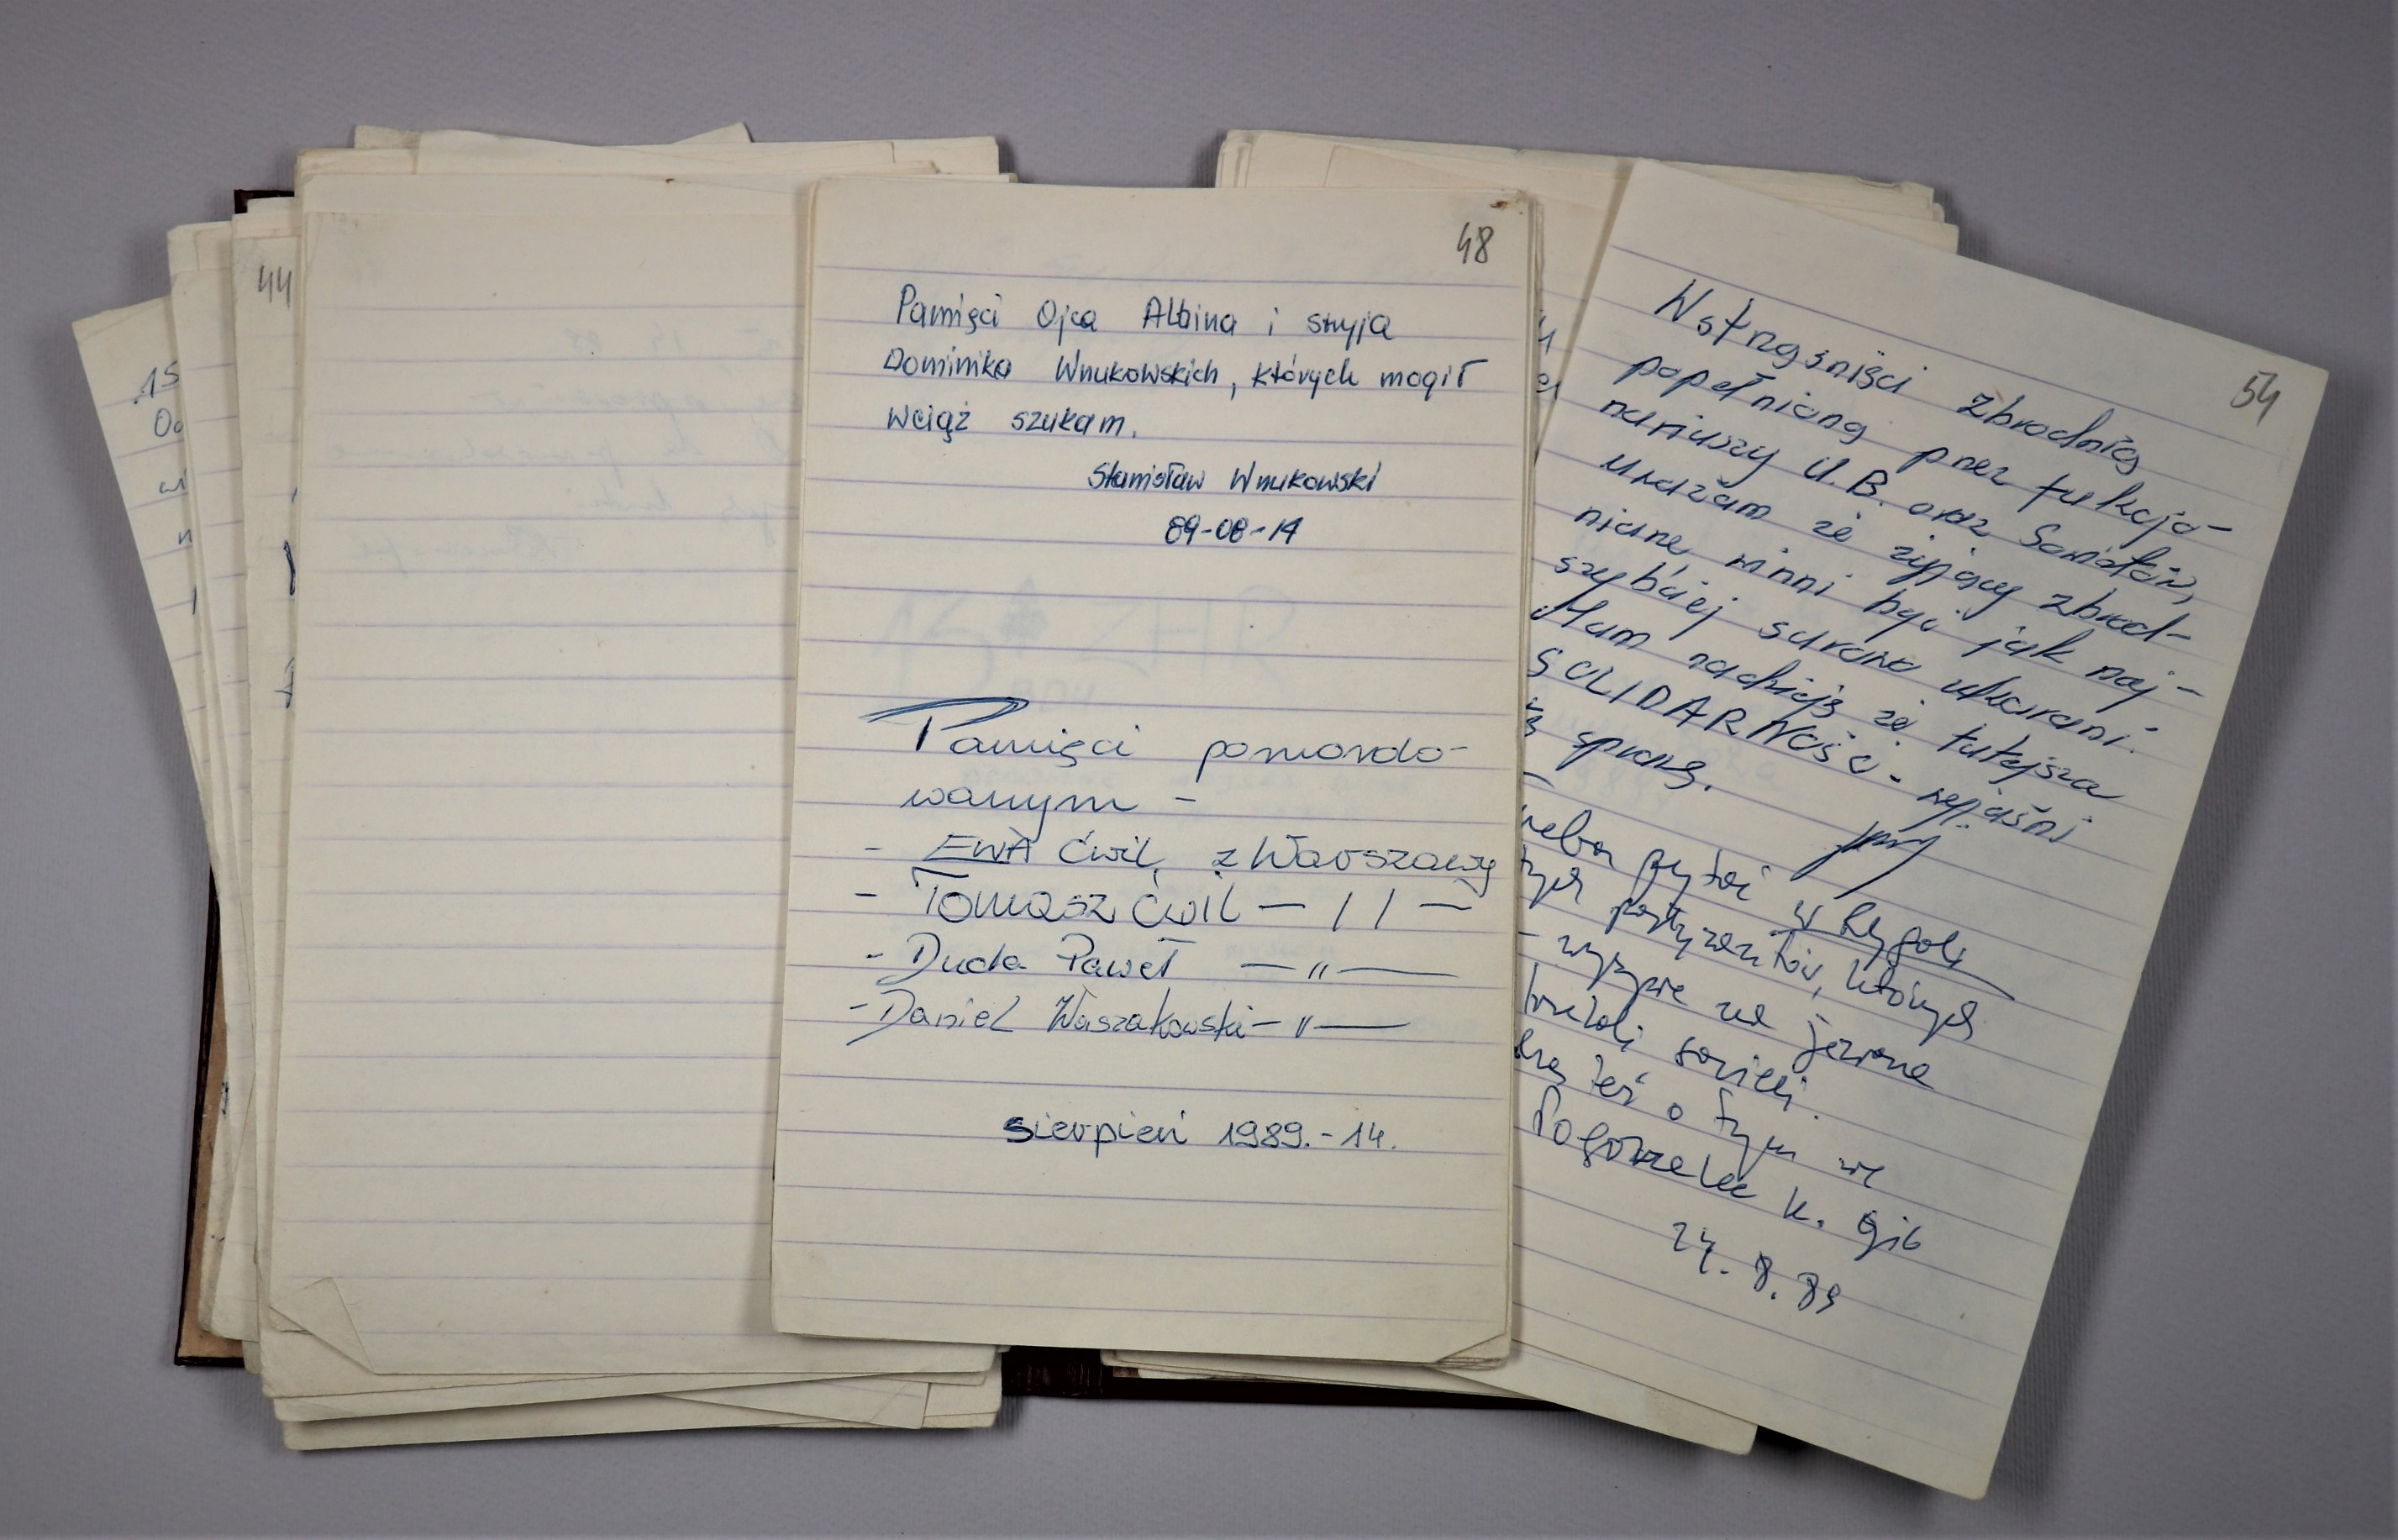 44
48
Pamięci Ojca Albina i stryja
Dominika Wnukowskich, których mogił
wciąż szukam.
Stanisław Wnukowski
89-08-14
Pamięci pomordo-
wanym -
- EWA Ćwil, z Warszawy
- Tomasz Ćwil — 11 —
- Duda Paweł — " —
- Daniel Waszakowski — " —
sierpień 1989.-14.
54
Wstrząśnięci zbrodnią
popełnioną przez fukcjo-
nariuszy U.B. oraz Sowietów,
uważam że żyjący zbrod-
niarze winni być jak naj-
szybciej surowo ukarani.
Mam nadzieję że tutejsza
SOLIDARNOŚĆ - wyjaśni
tę sprawę.
pytać w Rygoli
partyzantów, których
- wyspie na jeziorze
sowieci.
też o tym we
Pogorzelec k. Gib
24.8.89